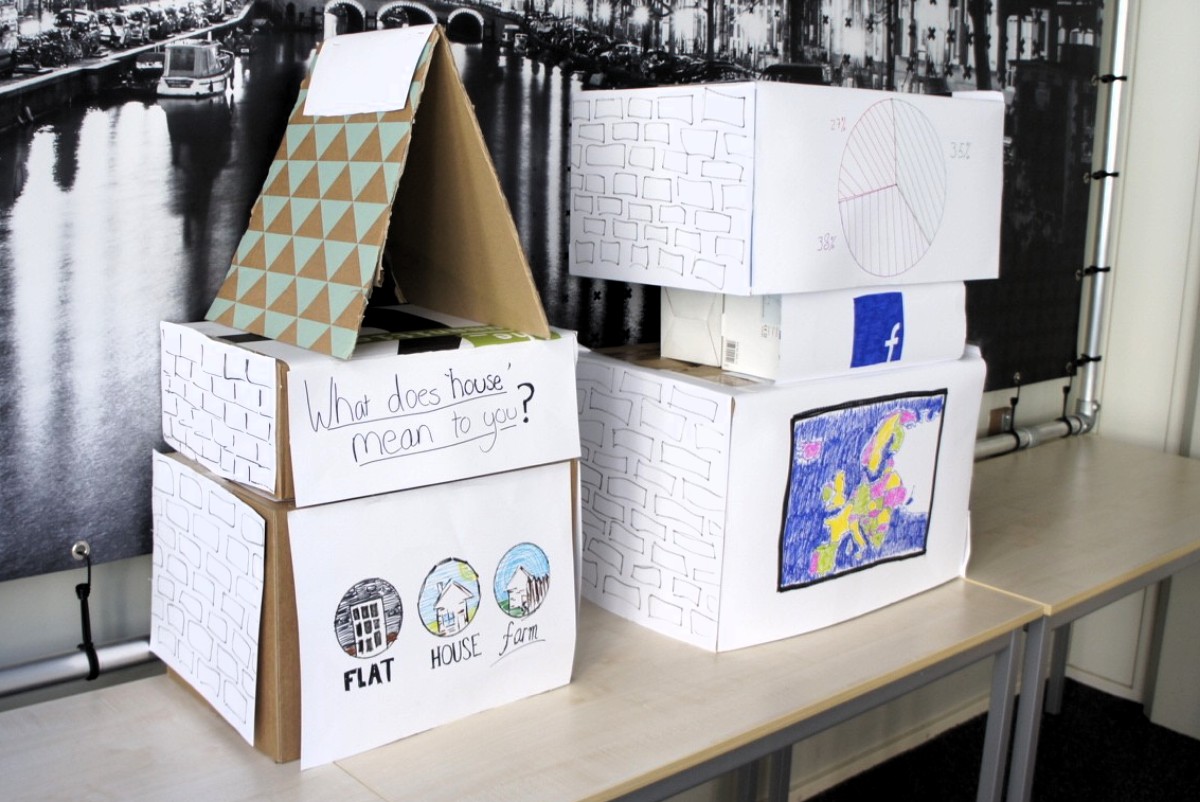 What does 'house'
mean to you?
FLAT
HOUSE
farm
27%
35%
38%
f